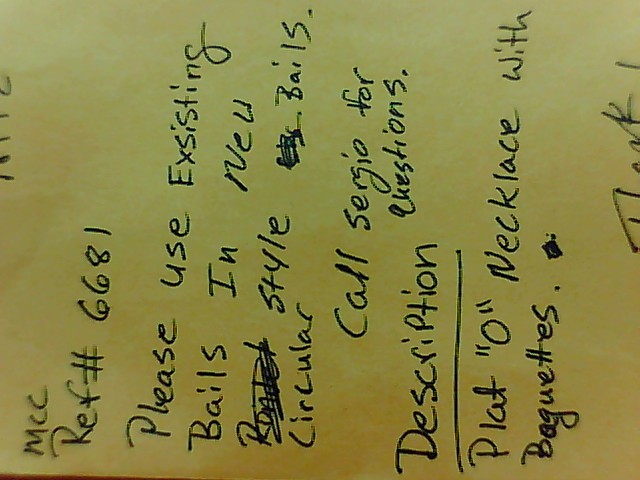 MCC
Ref# 6681
Please use Exsisting
Bails In New
Style Bails.
Circular
Call Sergio for
questions.
Description
Plat "O" Necklace with
Baguettes.